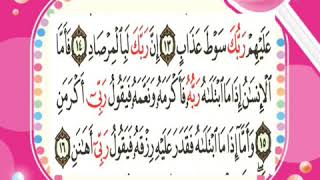 عَلَيْهِمْ رَبُّكَ سَوْطَ عَذَابٍ ١٣ إِنَّ رَبَّكَ لَبِالْمِرْصَادِ ١٤ فَأَمَّا
الْإِنسَٰنُ إِذَا مَا ابْتَلَىٰهُ رَبُّهُ فَأَكْرَمَهُ وَنَعَّمَهُ فَيَقُولُ رَبِّي أَكْرَمَنِ
١٥ وَأَمَّا إِذَا مَا ابْتَلَىٰهُ فَقَدَرَ عَلَيْهِ رِزْقَهُ فَيَقُولُ رَبِّي أَهَٰنَنِ ١٦